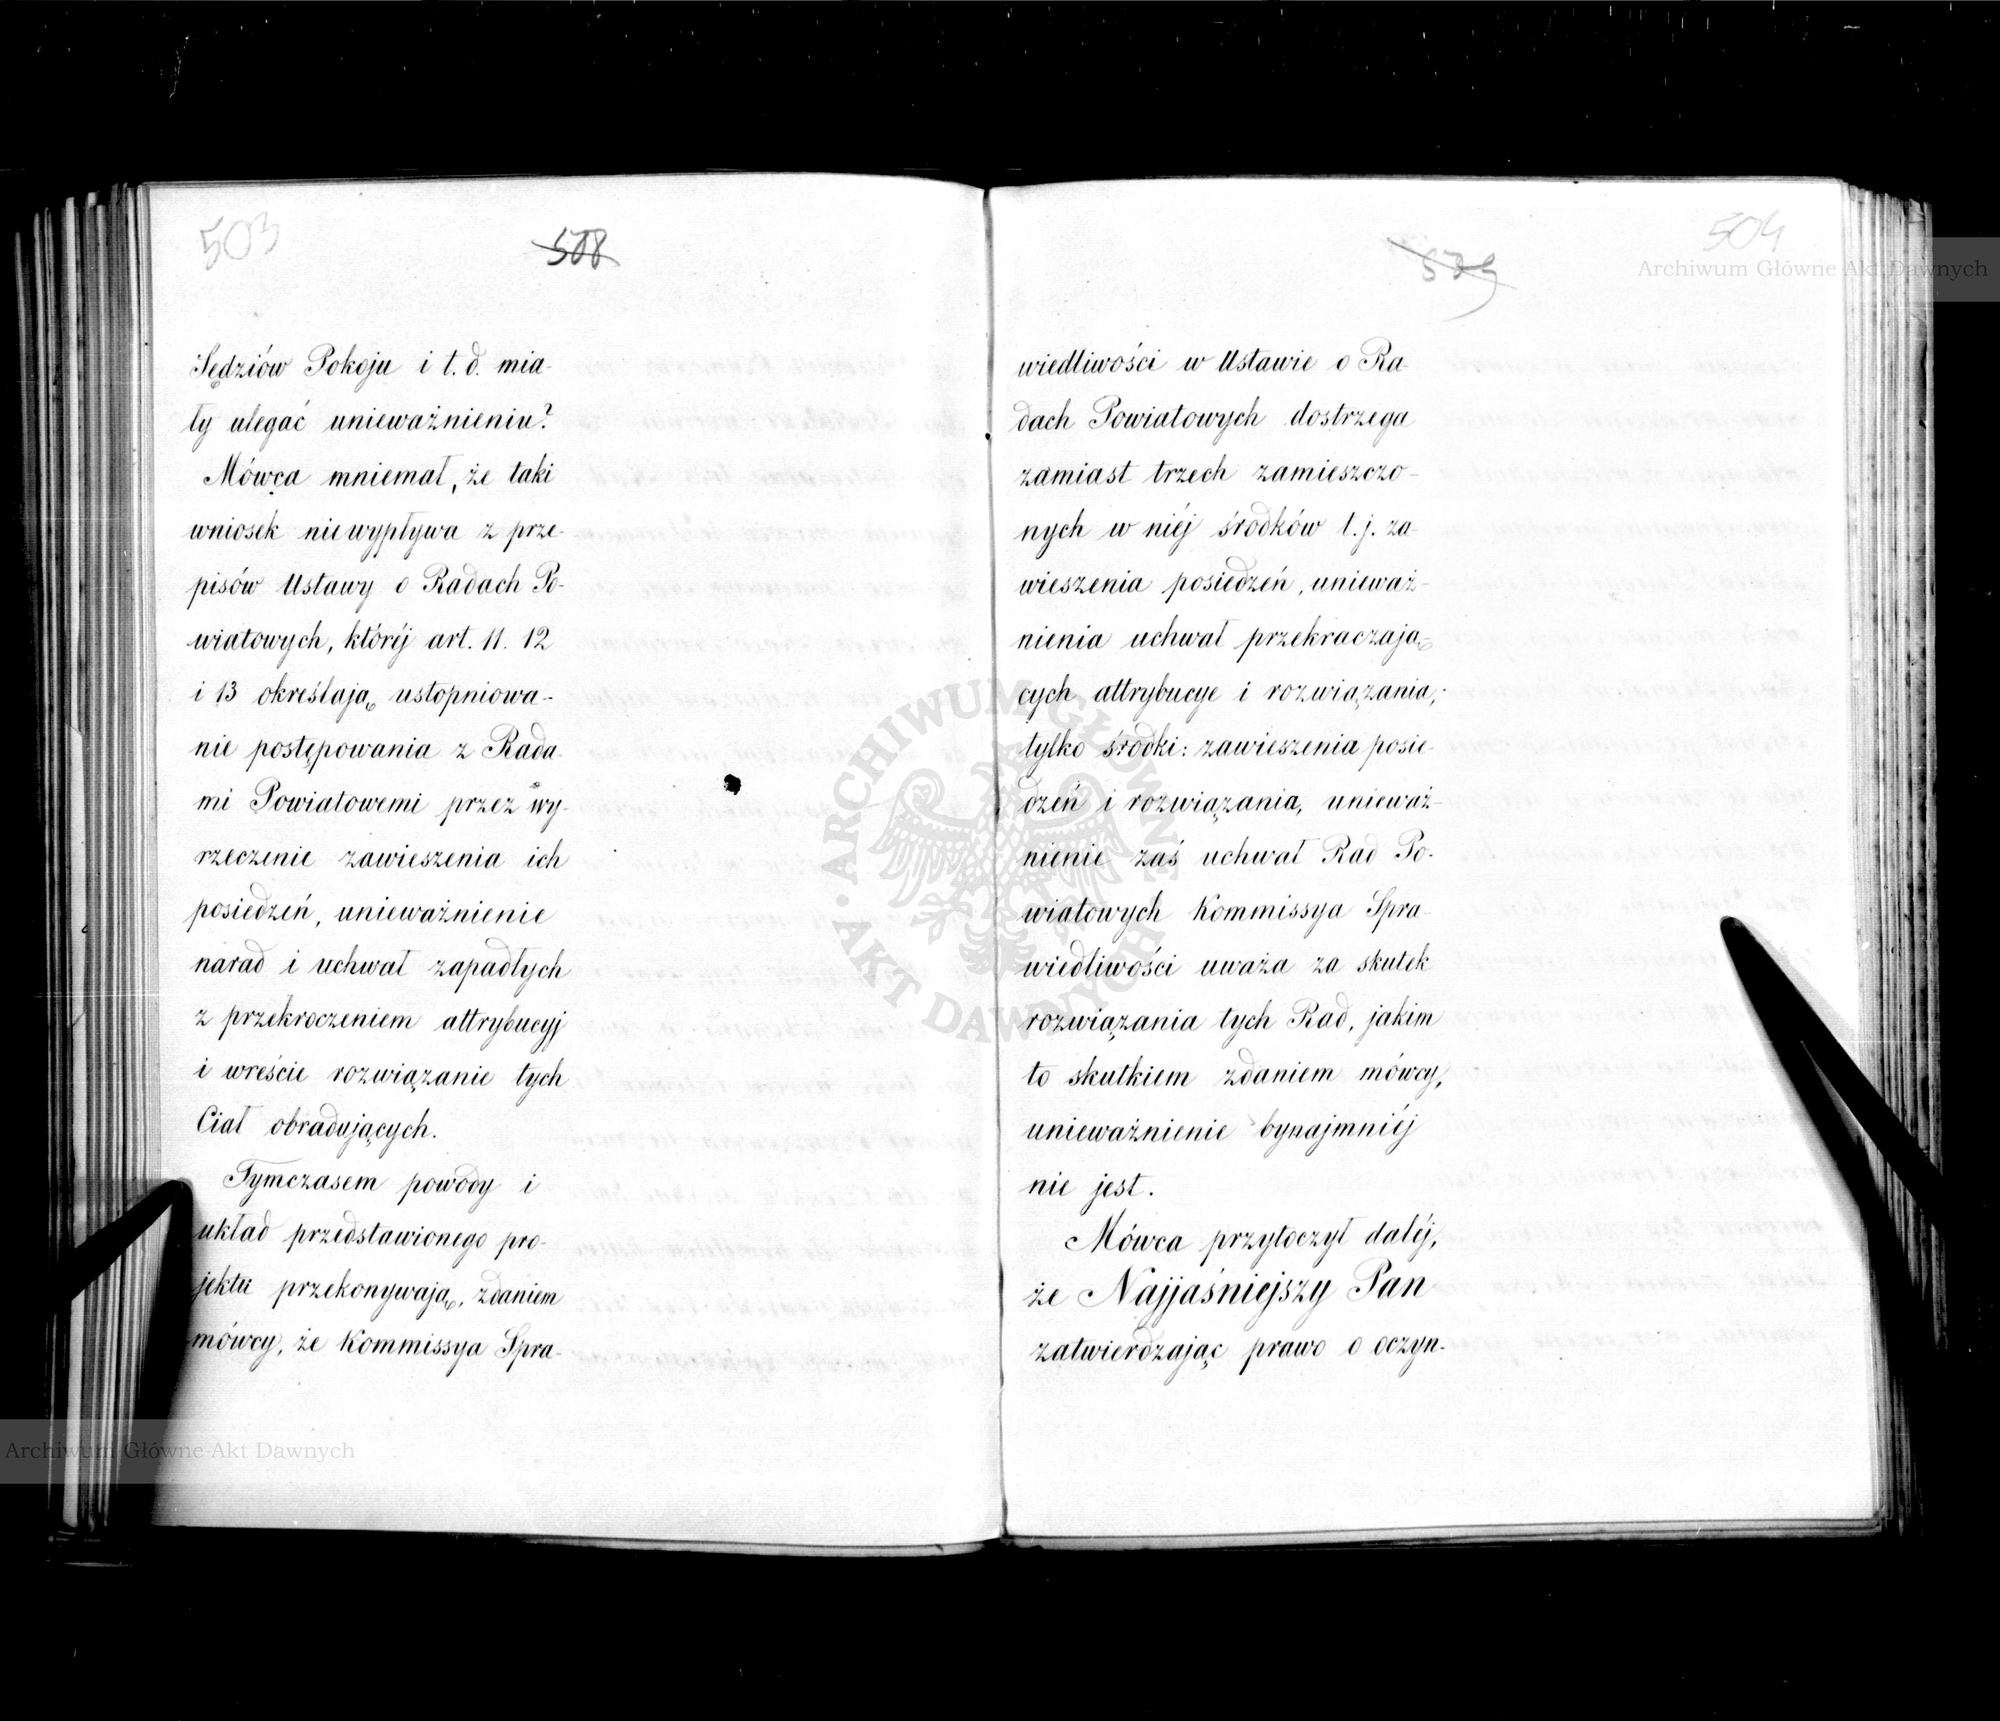 503
508
Sędziów Pokoju i t. d. mia-
ły ulegać unieważnieniu?
Mówca mniemał, że taki
wniosek nie wypływa z prze-
pisów Ustawy o Radach Po-
wiatowych, któréj art. 11. 12
i 13 określają ustopniowa-
nie postępowania z Rada-
mi Powiatowemi przez wy-
rzeczenie zawieszenia ich
posiedzeń, unieważnienie
narad i uchwał zapadłych
z przekroczeniem attrybucyj
i wreście rozwiązanie tych
Ciał obradujących.
Tymczasem powody i
układ przedstawionego pro-
jektu przekonywają, zdaniem
mówcy, że Kommissya Spra-
504
539
wiedliwości w Ustawie o Ra-
dach Powiatowych dostrzega
zamiast trzech zamieszczo-
nych w niéj środków t. j. za-
wieszenia posiedzeń, unieważ-
nienia uchwał przekraczają-
cych attrybucye i rozwiązania,-
tylko środki: zawieszenia posie-
dzeń i rozwiązania, unieważ-
nienie zaś uchwał Rad Po-
wiatowych Kommissya Spra-
wiedliwości uważa za skutek
rozwiązania tych Rad, jakim
to skutkiem zdaniem mówcy,
unieważnienie bynajmniéj
nie jest.
Mówca przytoczył daléj,
że Najjaśniejszy Pan
zatwierdzając prawo o oczyn-
Archiwum Główne Akt Dawnych
ARCHIWUM GŁÓWNE
AKT DAWNYCH
Archiwum Główne Akt Dawnych